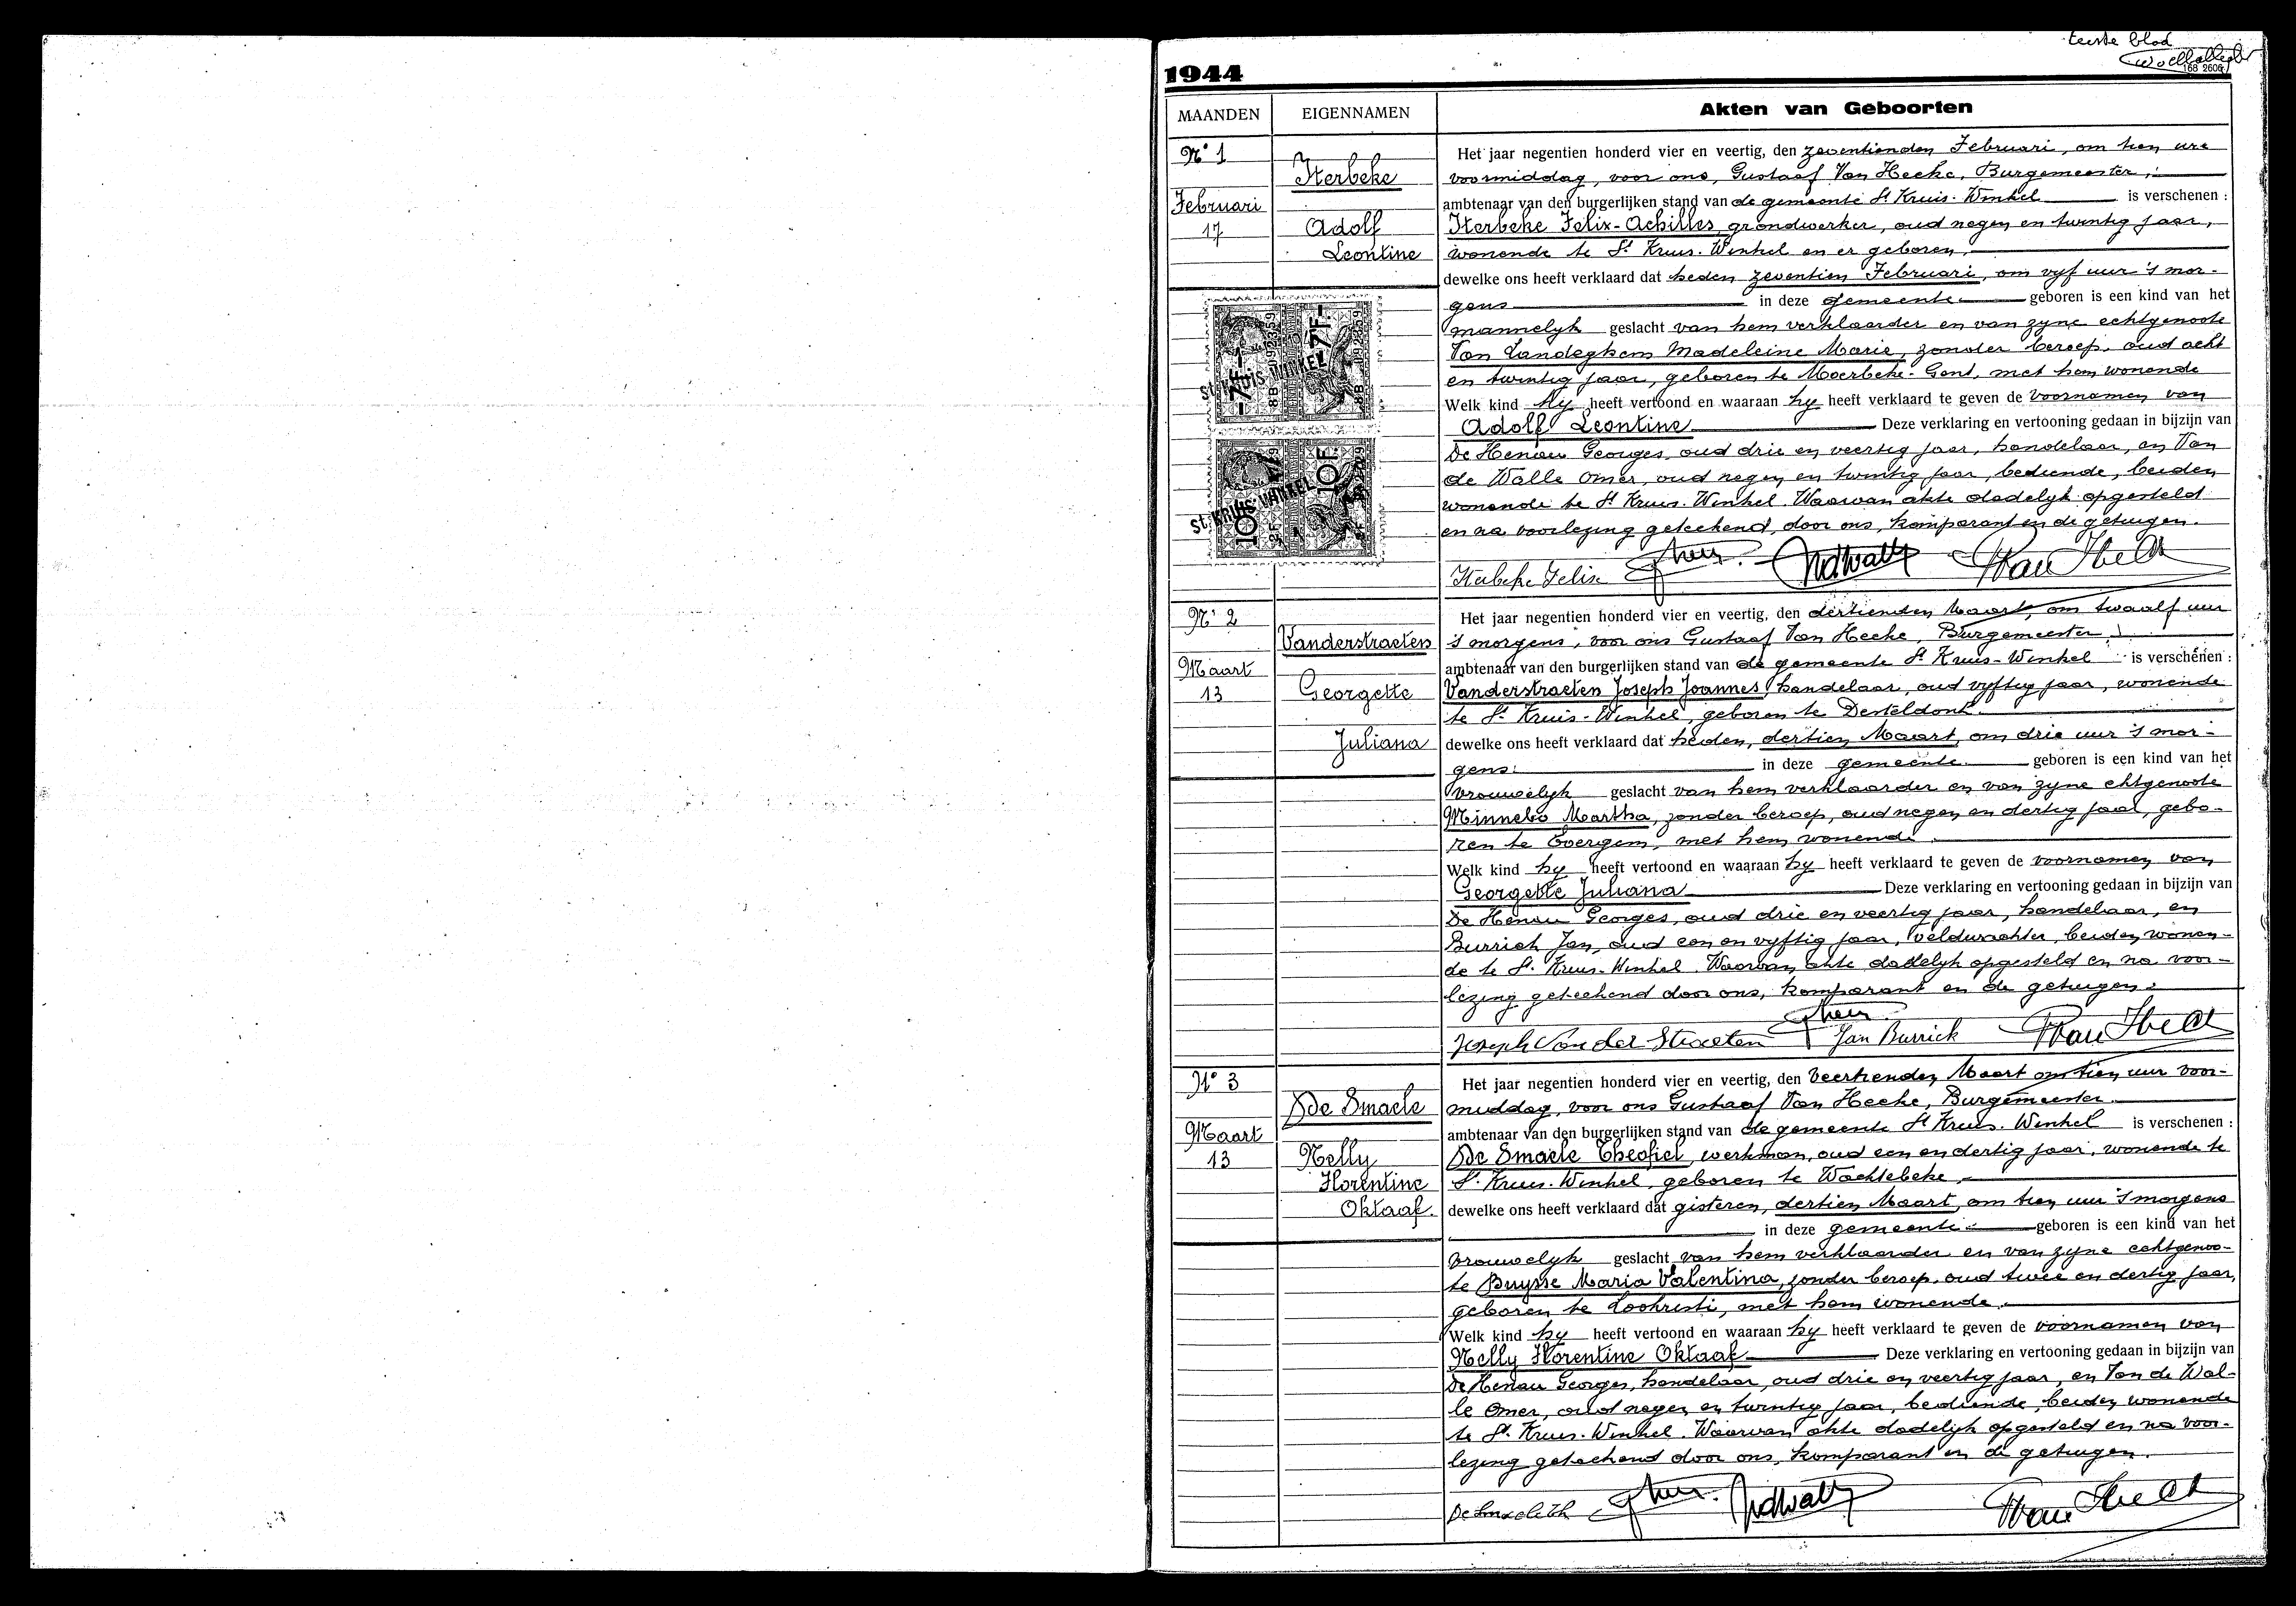 eerste blad
168 2606
1944
MAANDEN EIGENNAMEN Akten van Geboorten
N° 1
Februari
17
Iterbeke
Adolf
Leontine
Het jaar negentien honderd vier en veertig, den zeventienden Februari, om tien ure
voormiddag, voor ons, Gustaaf Van Hecke, Burgemeester,
ambtenaar van den burgerlijken stand van de gemeente St Kruis-Winkel is verschenen :
Iterbeke Felix-Achilles, grondwerker, oud negen en twintig jaar,
wonende te St Kruis-Winkel en er geboren,
dewelke ons heeft verklaard dat heden zeventien Februari, om vyf uur 's mor-
gens in deze gemeente geboren is een kind van het
mannelyk geslacht van hem verklaarder en van zyne echtgenoote
Van Landeghem Madeleine Marie, zonder beroep, oud acht
en twintig jaar, geboren te Moerbeke-Gent, met hem wonende
Welk kind hy heeft vertoond en waaraan hy heeft verklaard te geven de voornamen van
Adolf Leontine Deze verklaring en vertooning gedaan in bijzijn van
De Henau Georges, oud drie en veertig jaar, handelaar, en Van
de Walle Omer, oud negen en twintig jaar, bediende, beiden
wonende te St Kruis-Winkel. Waarvan akte dadelyk opgesteld
en na voorlezing geteekend, door ons, komparant en de getuigen.
Iterbeke Felix
-7F- -7F-
8B 092359 8B 092359
St. KRUIS-WINKEL
10F 10F
St. KRUIS-WINKEL
N° 2
Maart
13
Vanderstraeten
Georgette
Juliana
Het jaar negentien honderd vier en veertig, den dertienden Maart, om twaalf uur
's morgens, voor ons Gustaaf Van Hecke, Burgemeester,
ambtenaar van den burgerlijken stand van de gemeente St Kruis-Winkel is verschenen :
Vanderstraeten Joseph Joannes, handelaar, oud vyftig jaar, wonende
te St Kruis-Winkel, geboren te Desteldonk.
dewelke ons heeft verklaard dat heden, dertien Maart, om drie uur 's mor-
gens in deze gemeente geboren is een kind van het
vrouwelyk geslacht van hem verklaarder en van zyne echtgenoote
Minnebo Martha, zonder beroep, oud negen en dertig jaar, gebo-
ren te Evergem, met hem wonende.
Welk kind hy heeft vertoond en waaraan hy heeft verklaard te geven de voornamen van
Georgette Juliana Deze verklaring en vertooning gedaan in bijzijn van
De Henau Georges, oud drie en veertig jaar, handelaar, en
Burrick Jan, oud een en vyftig jaar, veldwachter, beiden wonen-
de te St. Kruis-Winkel. Waarvan akte dadelyk opgesteld en na voor-
lezing geteekend door ons, komparant en de getuigen.
Joseph Van der Straeten Jan Burrick
N° 3
Maart
13
De Smaele
Nelly
Florentine
Oktaaf.
Het jaar negentien honderd vier en veertig, den veertienden Maart om tien uur voor-
middag, voor ons Gustaaf Van Hecke, Burgemeester.
ambtenaar van den burgerlijken stand van de gemeente St Kruis-Winkel is verschenen :
De Smaele Theofiel, werkman, oud een en dertig jaar, wonende te
St. Kruis-Winkel, geboren te Wachtebeke,
dewelke ons heeft verklaard dat gisteren, dertien Maart, om tien uur 's morgens
in deze gemeente geboren is een kind van het
vrouwelyk geslacht van hem verklaarder en van zyne echtgenoo-
te Buysse Maria Valentina, zonder beroep, oud twee en dertig jaar,
geboren te Loochristi, met hem wonende.
Welk kind hy heeft vertoond en waaraan hy heeft verklaard te geven de voornamen van
Nelly Florentine Oktaaf Deze verklaring en vertooning gedaan in bijzijn van
De Henau Georges, handelaar, oud drie en veertig jaar, en Van de Wal-
le Omer, oud negen en twintig jaar, bediende, beiden wonende
te St. Kruis-Winkel. Waarvan akte dadelyk opgesteld en na voor-
lezing geteekend door ons, komparant en de getuigen.
De Smaele Th